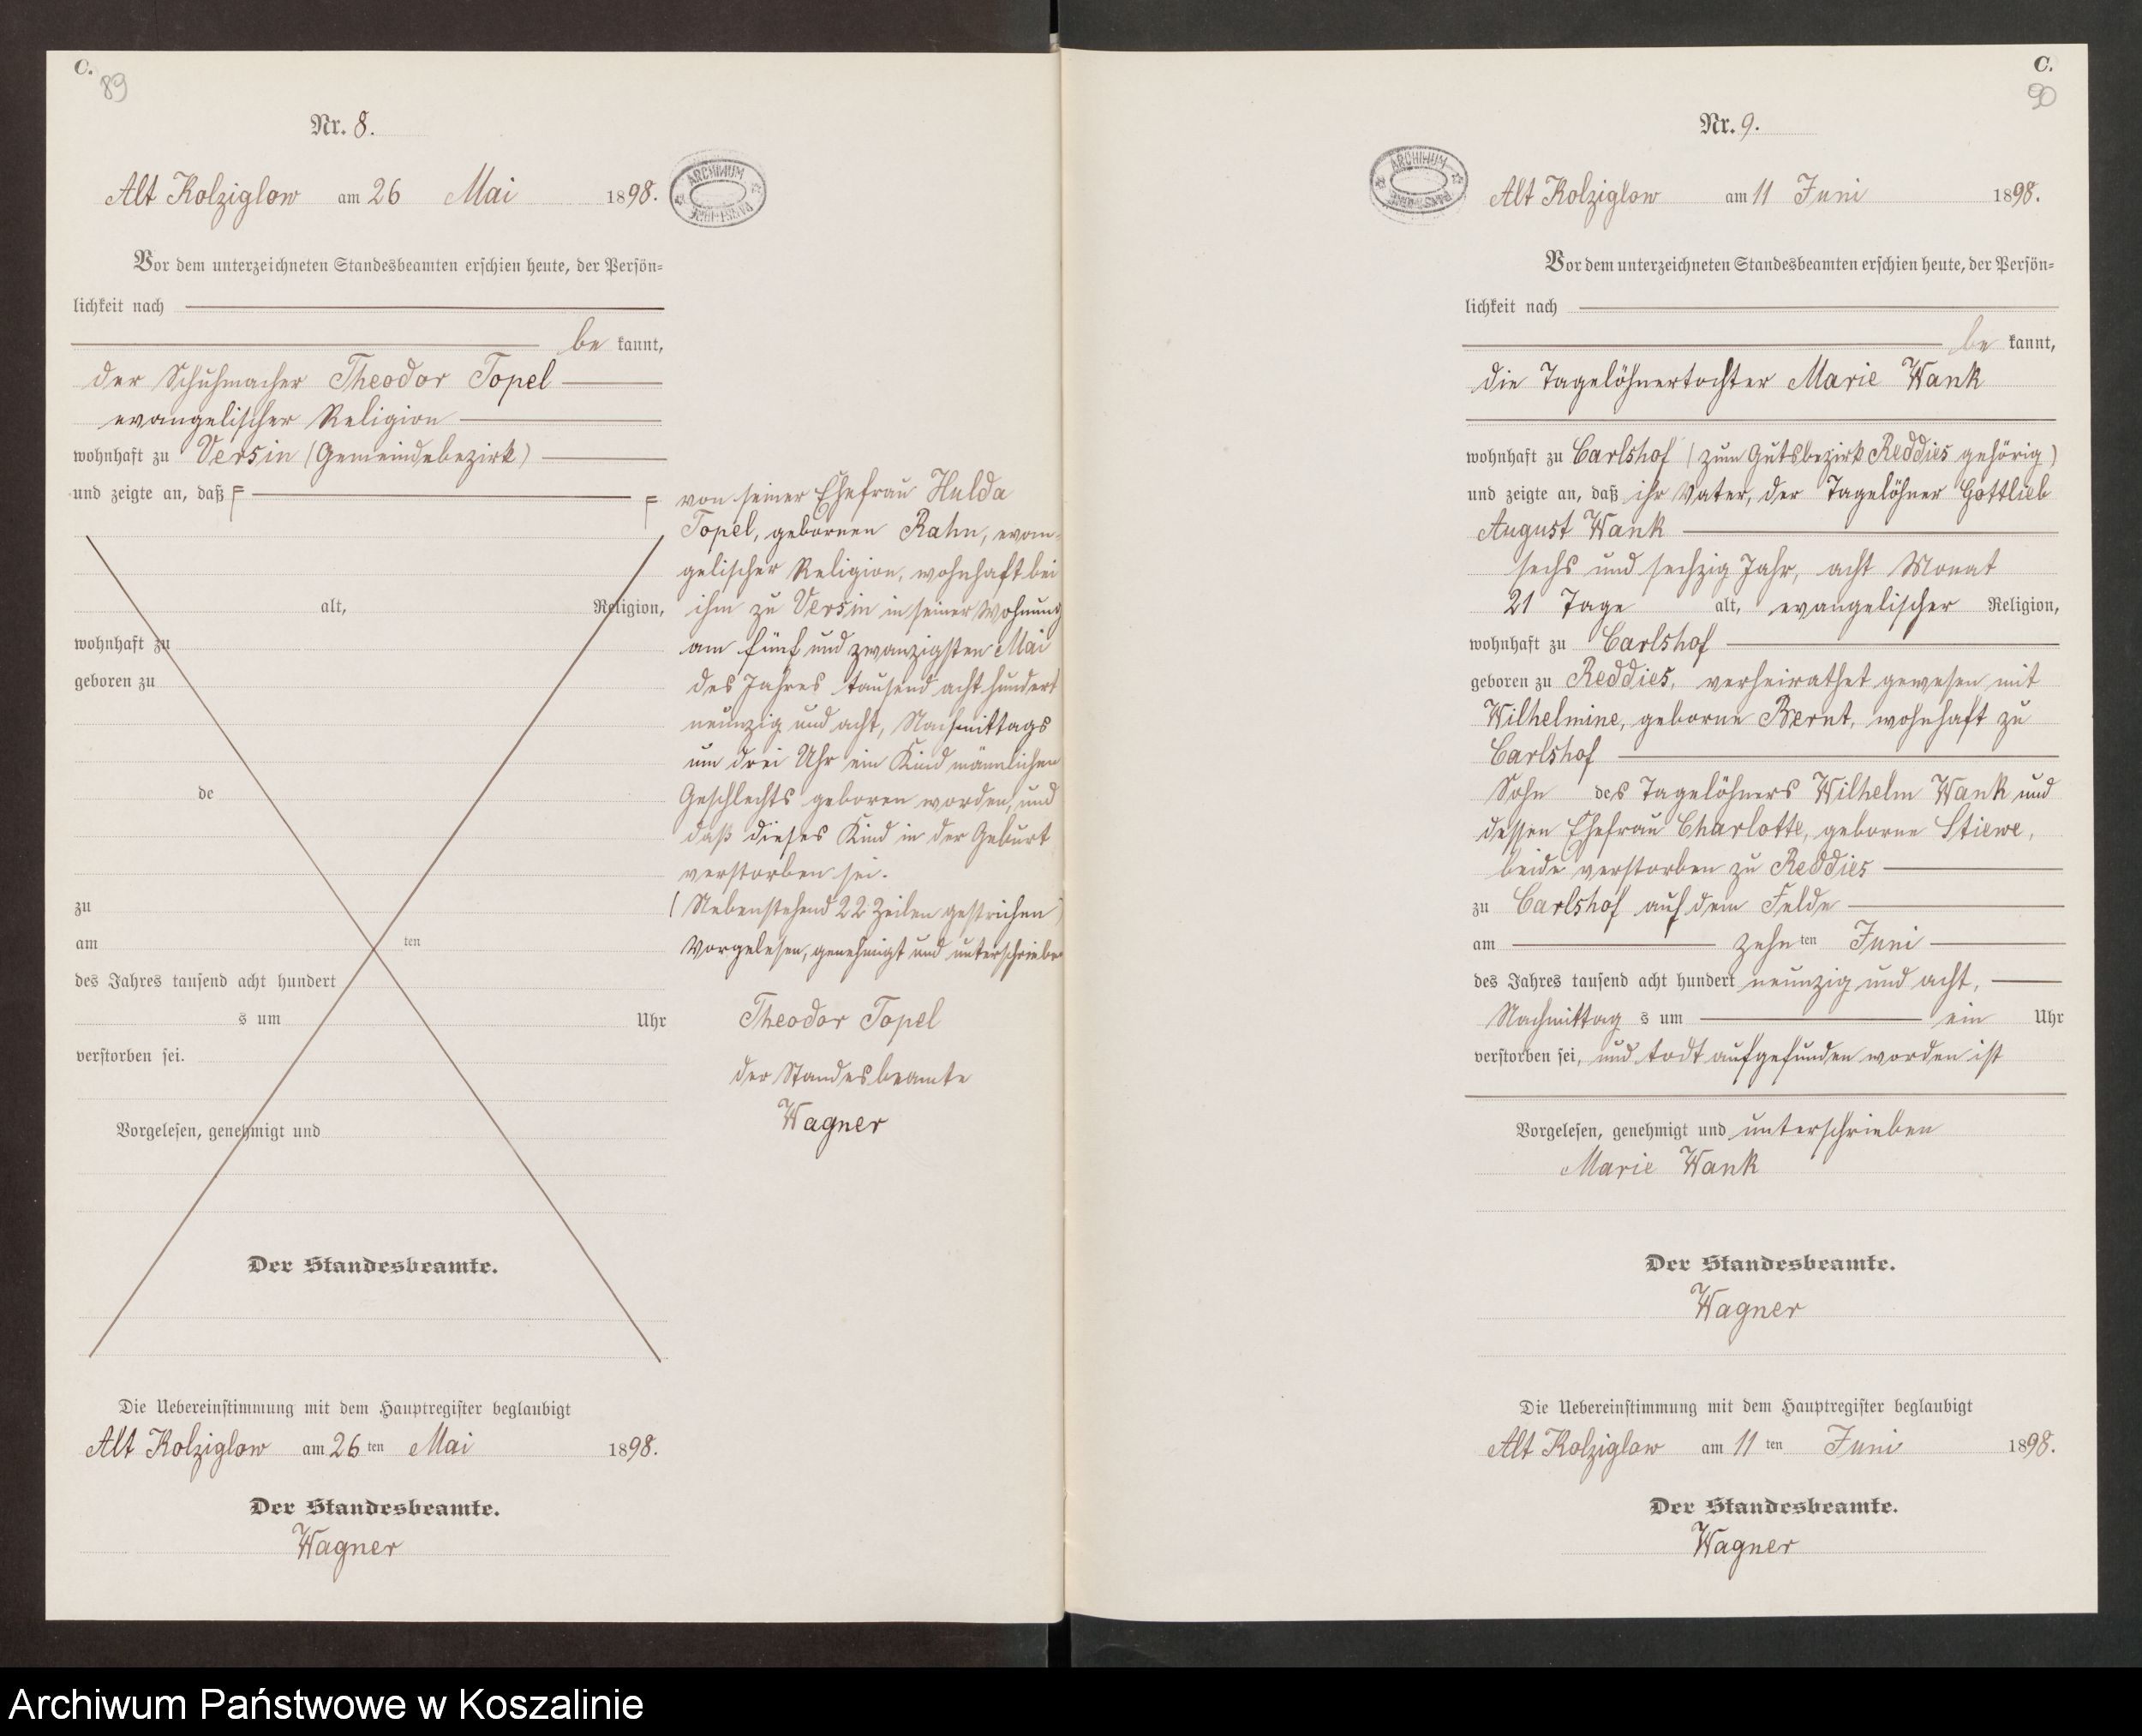 C.
89
Nr. 8.
Alt Kolziglow am 26 Mai 1898.
ARCHIWUM
Vor dem unterzeichneten Standesbeamten erschien heute, der Persön-
lichkeit nach
be kannt,
der Schuhmacher Theodor Topel
evangelischer Religion
wohnhaft zu Versin (Gemeindebezirk)
und zeigte an, daß
alt, Religion,
wohnhaft zu
geboren zu
de
zu
am ten
des Jahres tausend acht hundert
s um Uhr
verstorben sei.
Vorgelesen, genehmigt und
Der Standesbeamte.
von seiner Ehefrau Hulda
Topel, geborenen Rahn, evan-
gelischer Religion, wohnhaft bei
ihm zu Versin in seiner Wohnung
am fünf und zwanzigsten Mai
des Jahres tausend acht hundert
neunzig und acht, Nachmittags
um drei Uhr ein Kind männlichen
Geschlechts geboren worden, und
daß dieses Kind in der Geburt
verstorben sei.
(Nebenstehend 22 Zeilen gestrichen)
Vorgelesen, genehmigt und unterschrieben
Theodor Topel
der Standesbeamte
Wagner
Die Uebereinstimmung mit dem Hauptregister beglaubigt
Alt Kolziglow am 26 ten Mai 1898.
Der Standesbeamte.
Wagner
C.
90
Nr. 9.
ARCHIWUM
Alt Kolziglow am 11 Juni 1898.
Vor dem unterzeichneten Standesbeamten erschien heute, der Persön-
lichkeit nach
be kannt,
die Tagelöhnertochter Marie Wank
wohnhaft zu Carlshof (zum Gutsbezirk Reddies gehörig)
und zeigte an, daß ihr Vater, der Tagelöhner Gottlieb
August Wank
sechs und sechzig Jahr, acht Monat
21 Tage alt, evangelischer Religion,
wohnhaft zu Carlshof
geboren zu Reddies, verheirathet gewesen mit
Wilhelmine, geborne Bernt, wohnhaft zu
Carlshof
Sohn des Tagelöhners Wilhelm Wank und
dessen Ehefrau Charlotte, geborne Stiewe,
beide verstorben zu Reddies
zu Carlshof auf dem Felde
am zehn ten Juni
des Jahres tausend acht hundert neunzig und acht,
Nachmittag s um ein Uhr
verstorben sei, und todt aufgefunden worden ist
Vorgelesen, genehmigt und unterschrieben
Marie Wank
Der Standesbeamte.
Wagner
Die Uebereinstimmung mit dem Hauptregister beglaubigt
Alt Kolziglow am 11 ten Juni 1898.
Der Standesbeamte.
Wagner
Archiwum Państwowe w Koszalinie